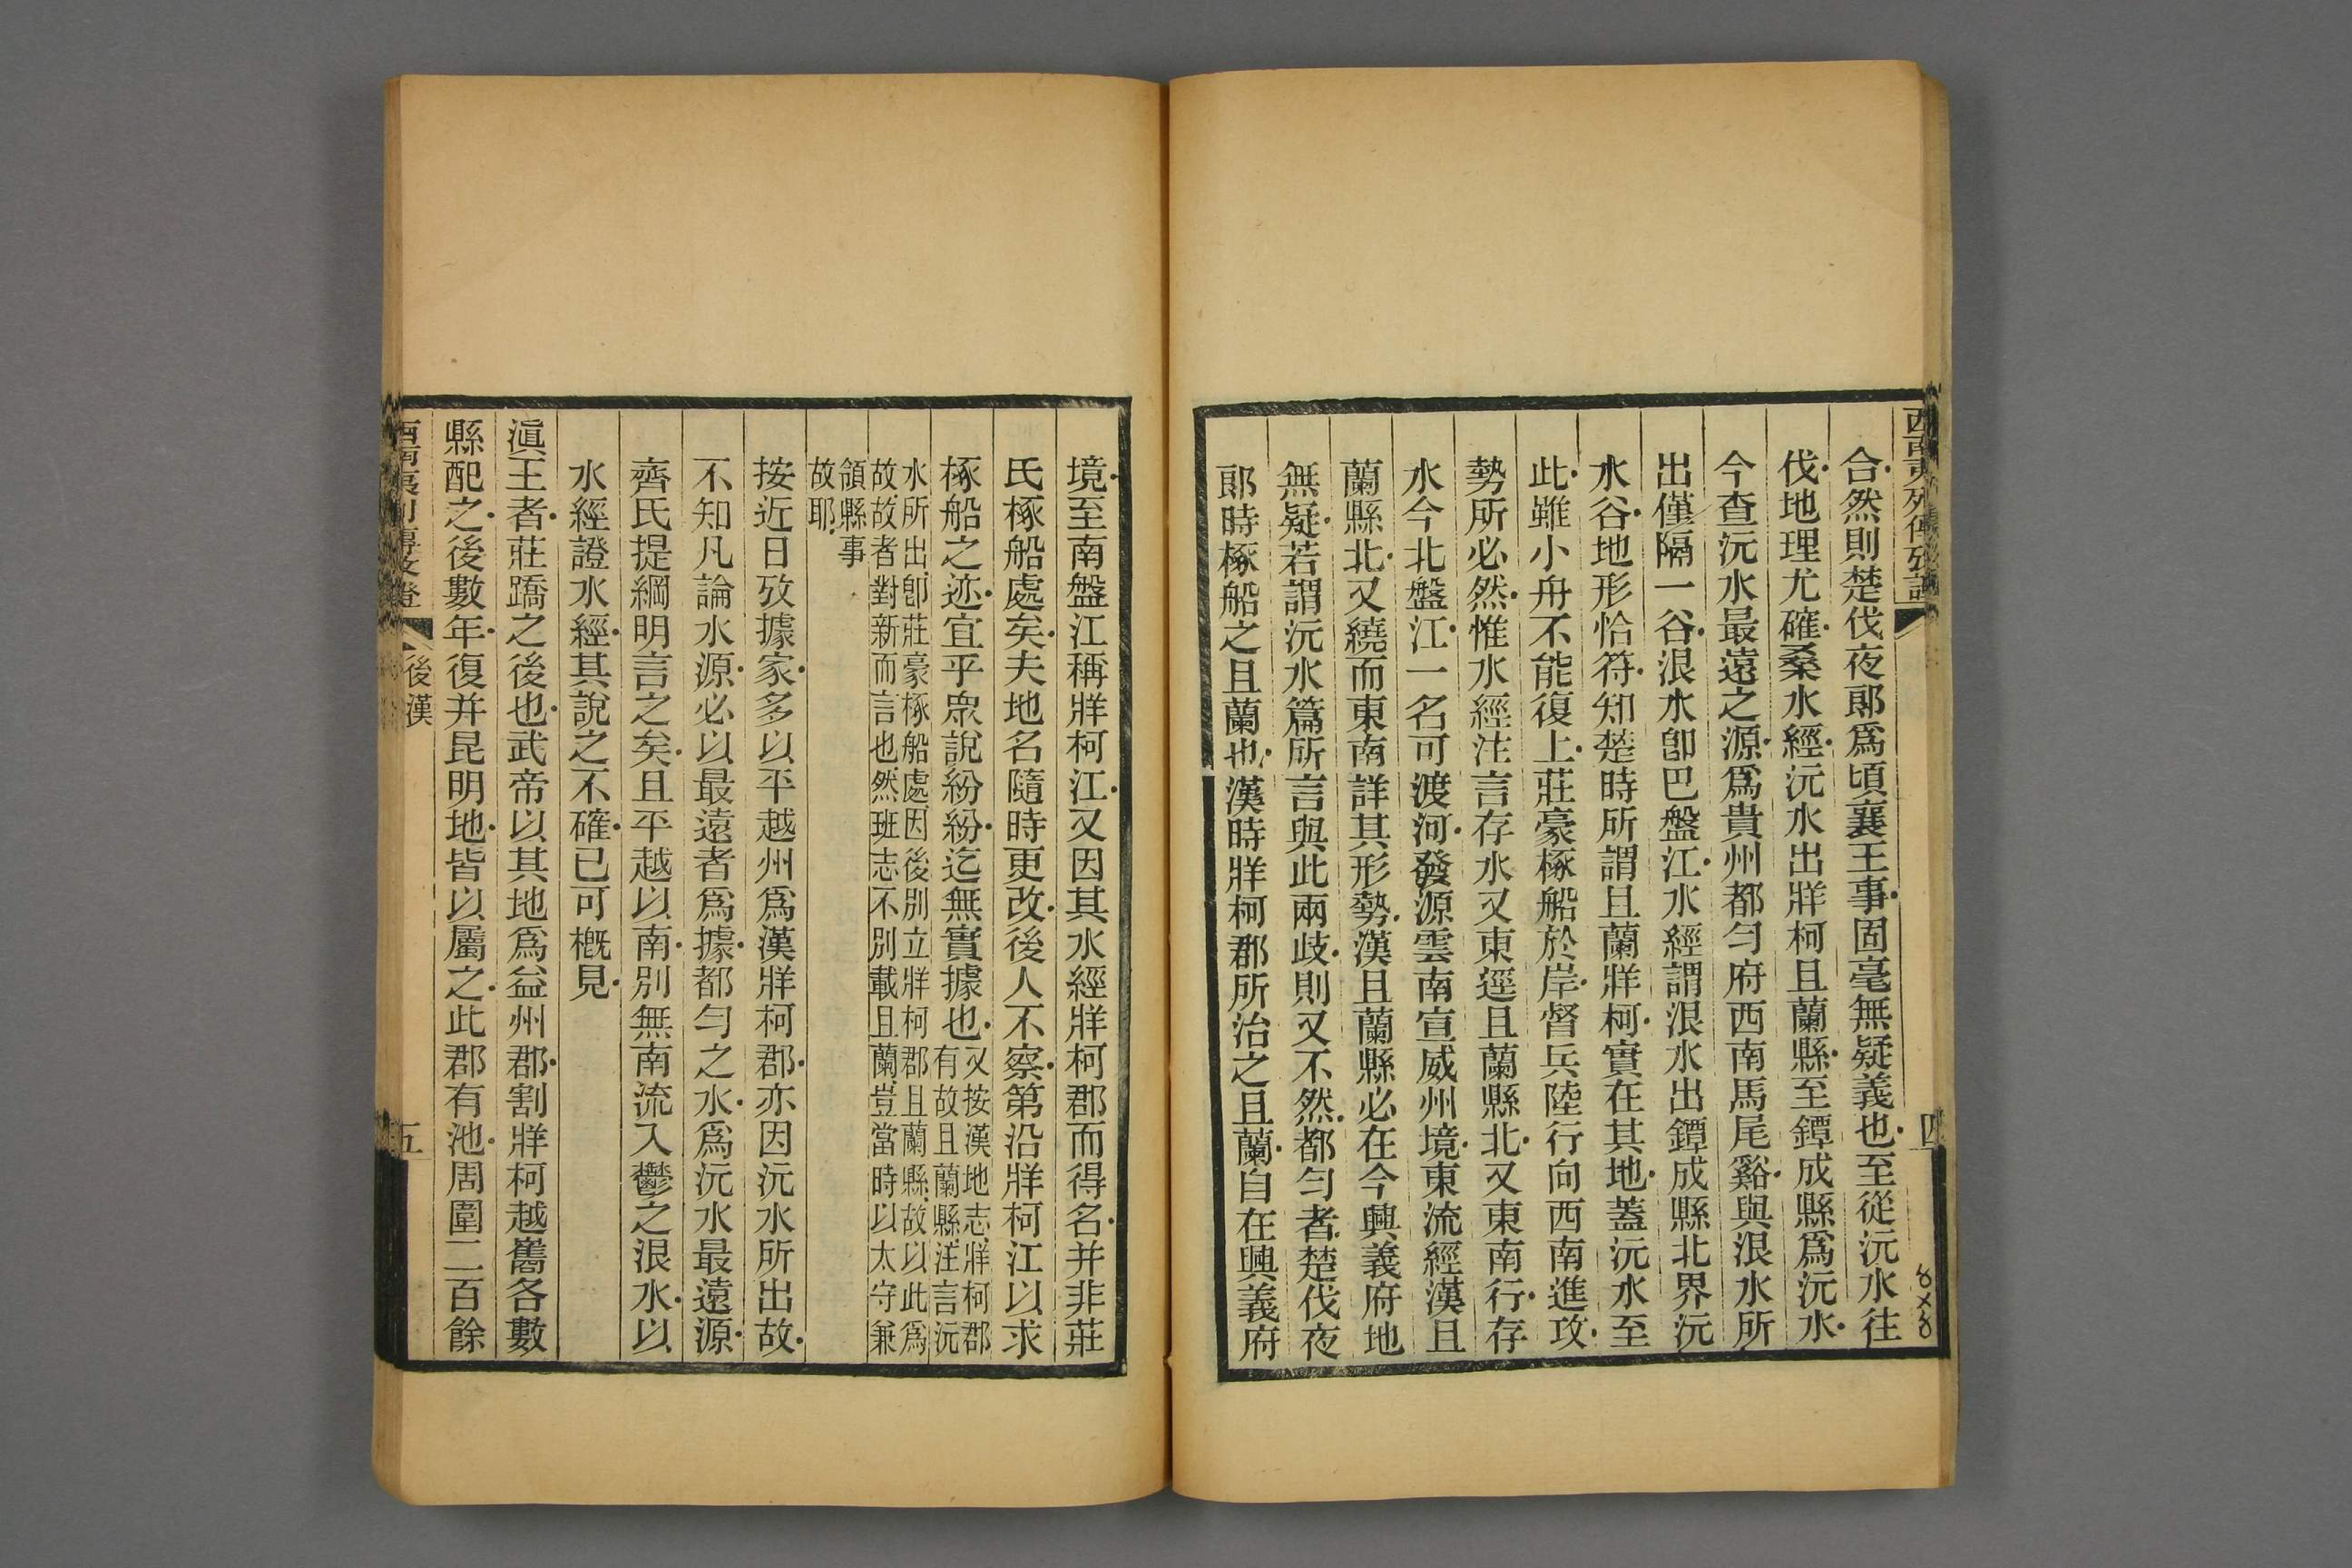 西南夷列傳攷證
四
合然則楚伐夜郞爲頃襄王事固毫無疑義也至從沅水往
伐地理尤確桑水經沅水出牂柯且蘭縣至鐔成縣爲沅水
今查沅水最遠之源爲貴州都勻府西南馬尾谿與泿水所
出僅隔一谷泿水卽巴盤江水經謂泿水出鐔成縣北界沅
水谷地形恰符知楚時所謂且蘭牂柯實在其地蓋沅水至
此雖小舟不能復上莊豪椓船於岸督兵陸行向西南進攻
勢所必然惟水經注言存水又東逕且蘭縣北又東南行存
水今北盤江一名可渡河發源雲南宣威州境東流經漢且
蘭縣北又繞而東南詳其形勢漢且蘭縣必在今興義府地
無疑若謂沅水篇所言與此兩歧則又不然都勻者楚伐夜
郞時椓船之且蘭也漢時牂柯郡所治之且蘭自在興義府
境至南盤江稱牂柯江又因其水經牂柯郡而得名并非莊
氏椓船處矣夫地名隨時更改後人不察第沿牂柯江以求
椓船之迹宜乎眾說紛紛迄無實據也又按漢地志牂柯郡
有故且蘭縣注言沅
水所出卽莊豪椓船處因後別立牂柯郡且蘭縣故以此爲
故故者對新而言也然班志不別載且蘭豈當時以太守兼
領縣事
故耶
按近日攷據家多以平越州爲漢牂柯郡亦因沅水所出故
不知凡論水源必以最遠者爲據都勻之水爲沅水最遠源
齊氏提綱明言之矣且平越以南別無南流入鬱之泿水以
水經證水經其說之不確已可槪見
滇王者莊蹻之後也武帝以其地爲益州郡割牂柯越嶲各數
縣配之後數年復并昆明地皆以屬之此郡有池周圍二百餘
西南夷列傳攷證
後漢
五